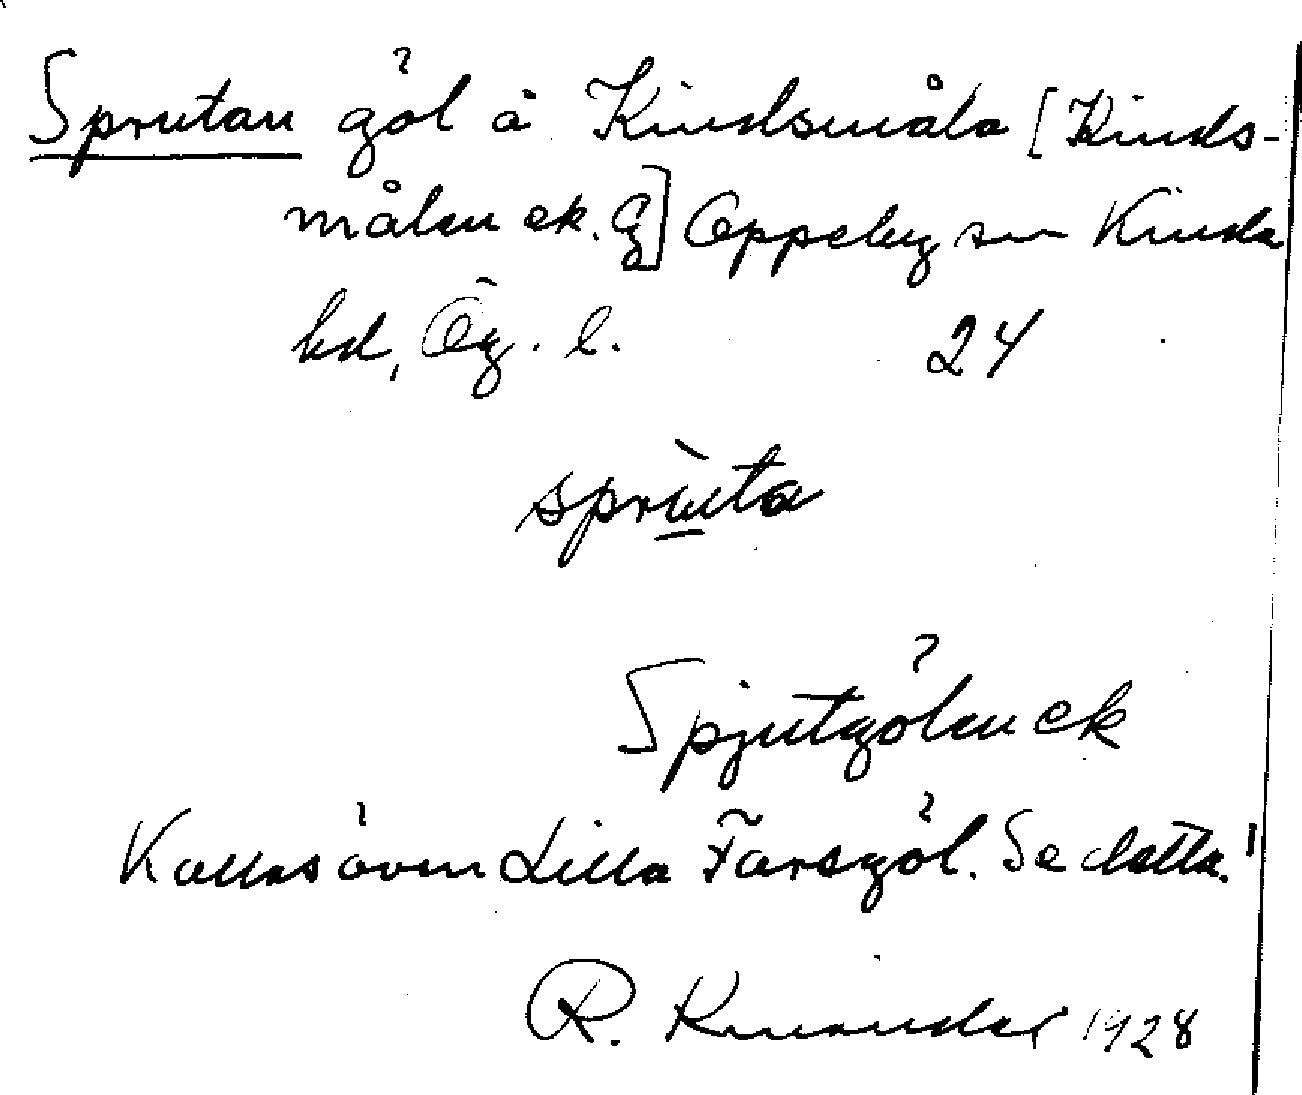 Sprutan göl å Kindsmåla [Kinds-
målen ek. Q] Oppeby sn Kinda
hd, Ög. l. 24
sprùta
Spjutgölen ek
Kallas även Lilla Farsgöl. Se detta!
R. 1928